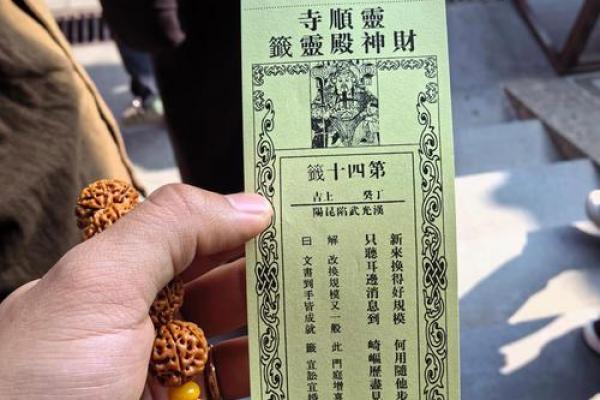 靈順寺
財神殿靈籤
第四十籤
丁癸 上吉
漢光武陷昆陽
新來換得好規模 何用隨他步
只聽耳邊消息到 崎嶇歷盡見
解 改換規模又一般 此 門庭增喜
曰 文書到手皆成就 籤 宜訟宜婚